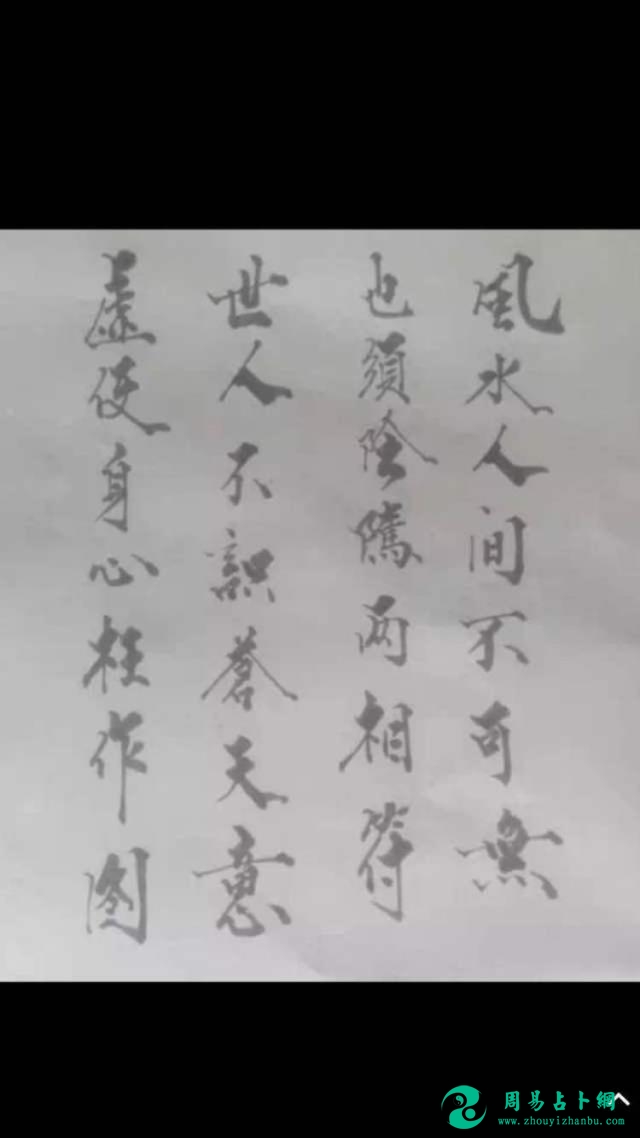 風水人间不可無
也須陰隲两相符
世人不識蒼天意
虚使身心枉作图
周易占卜網
www.zhouyizhanbu.com